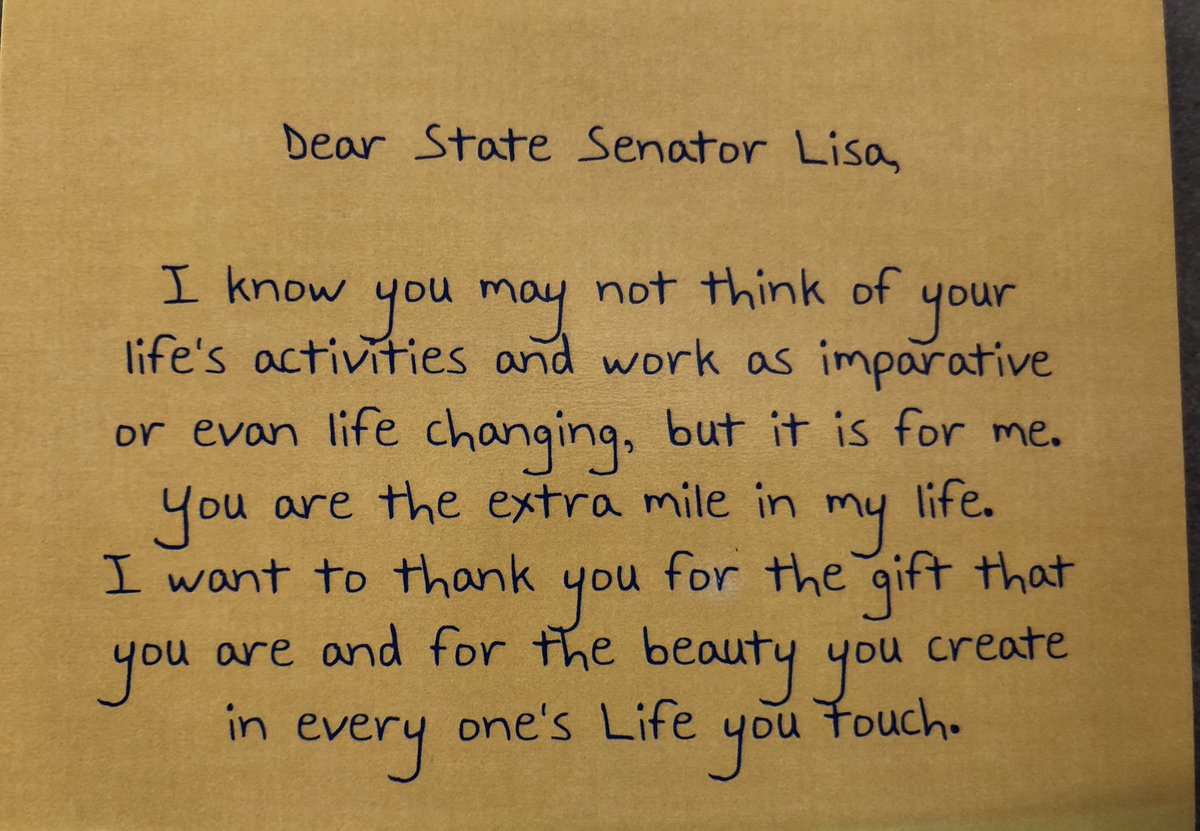 Dear State Senator Lisa,
I know you may not think of your
life's activities and work as imparative
or evan life changing, but it is for me.
You are the extra mile in my life.
I want to thank you for the gift that
you are and for the beauty you create
in every one's Life you touch.